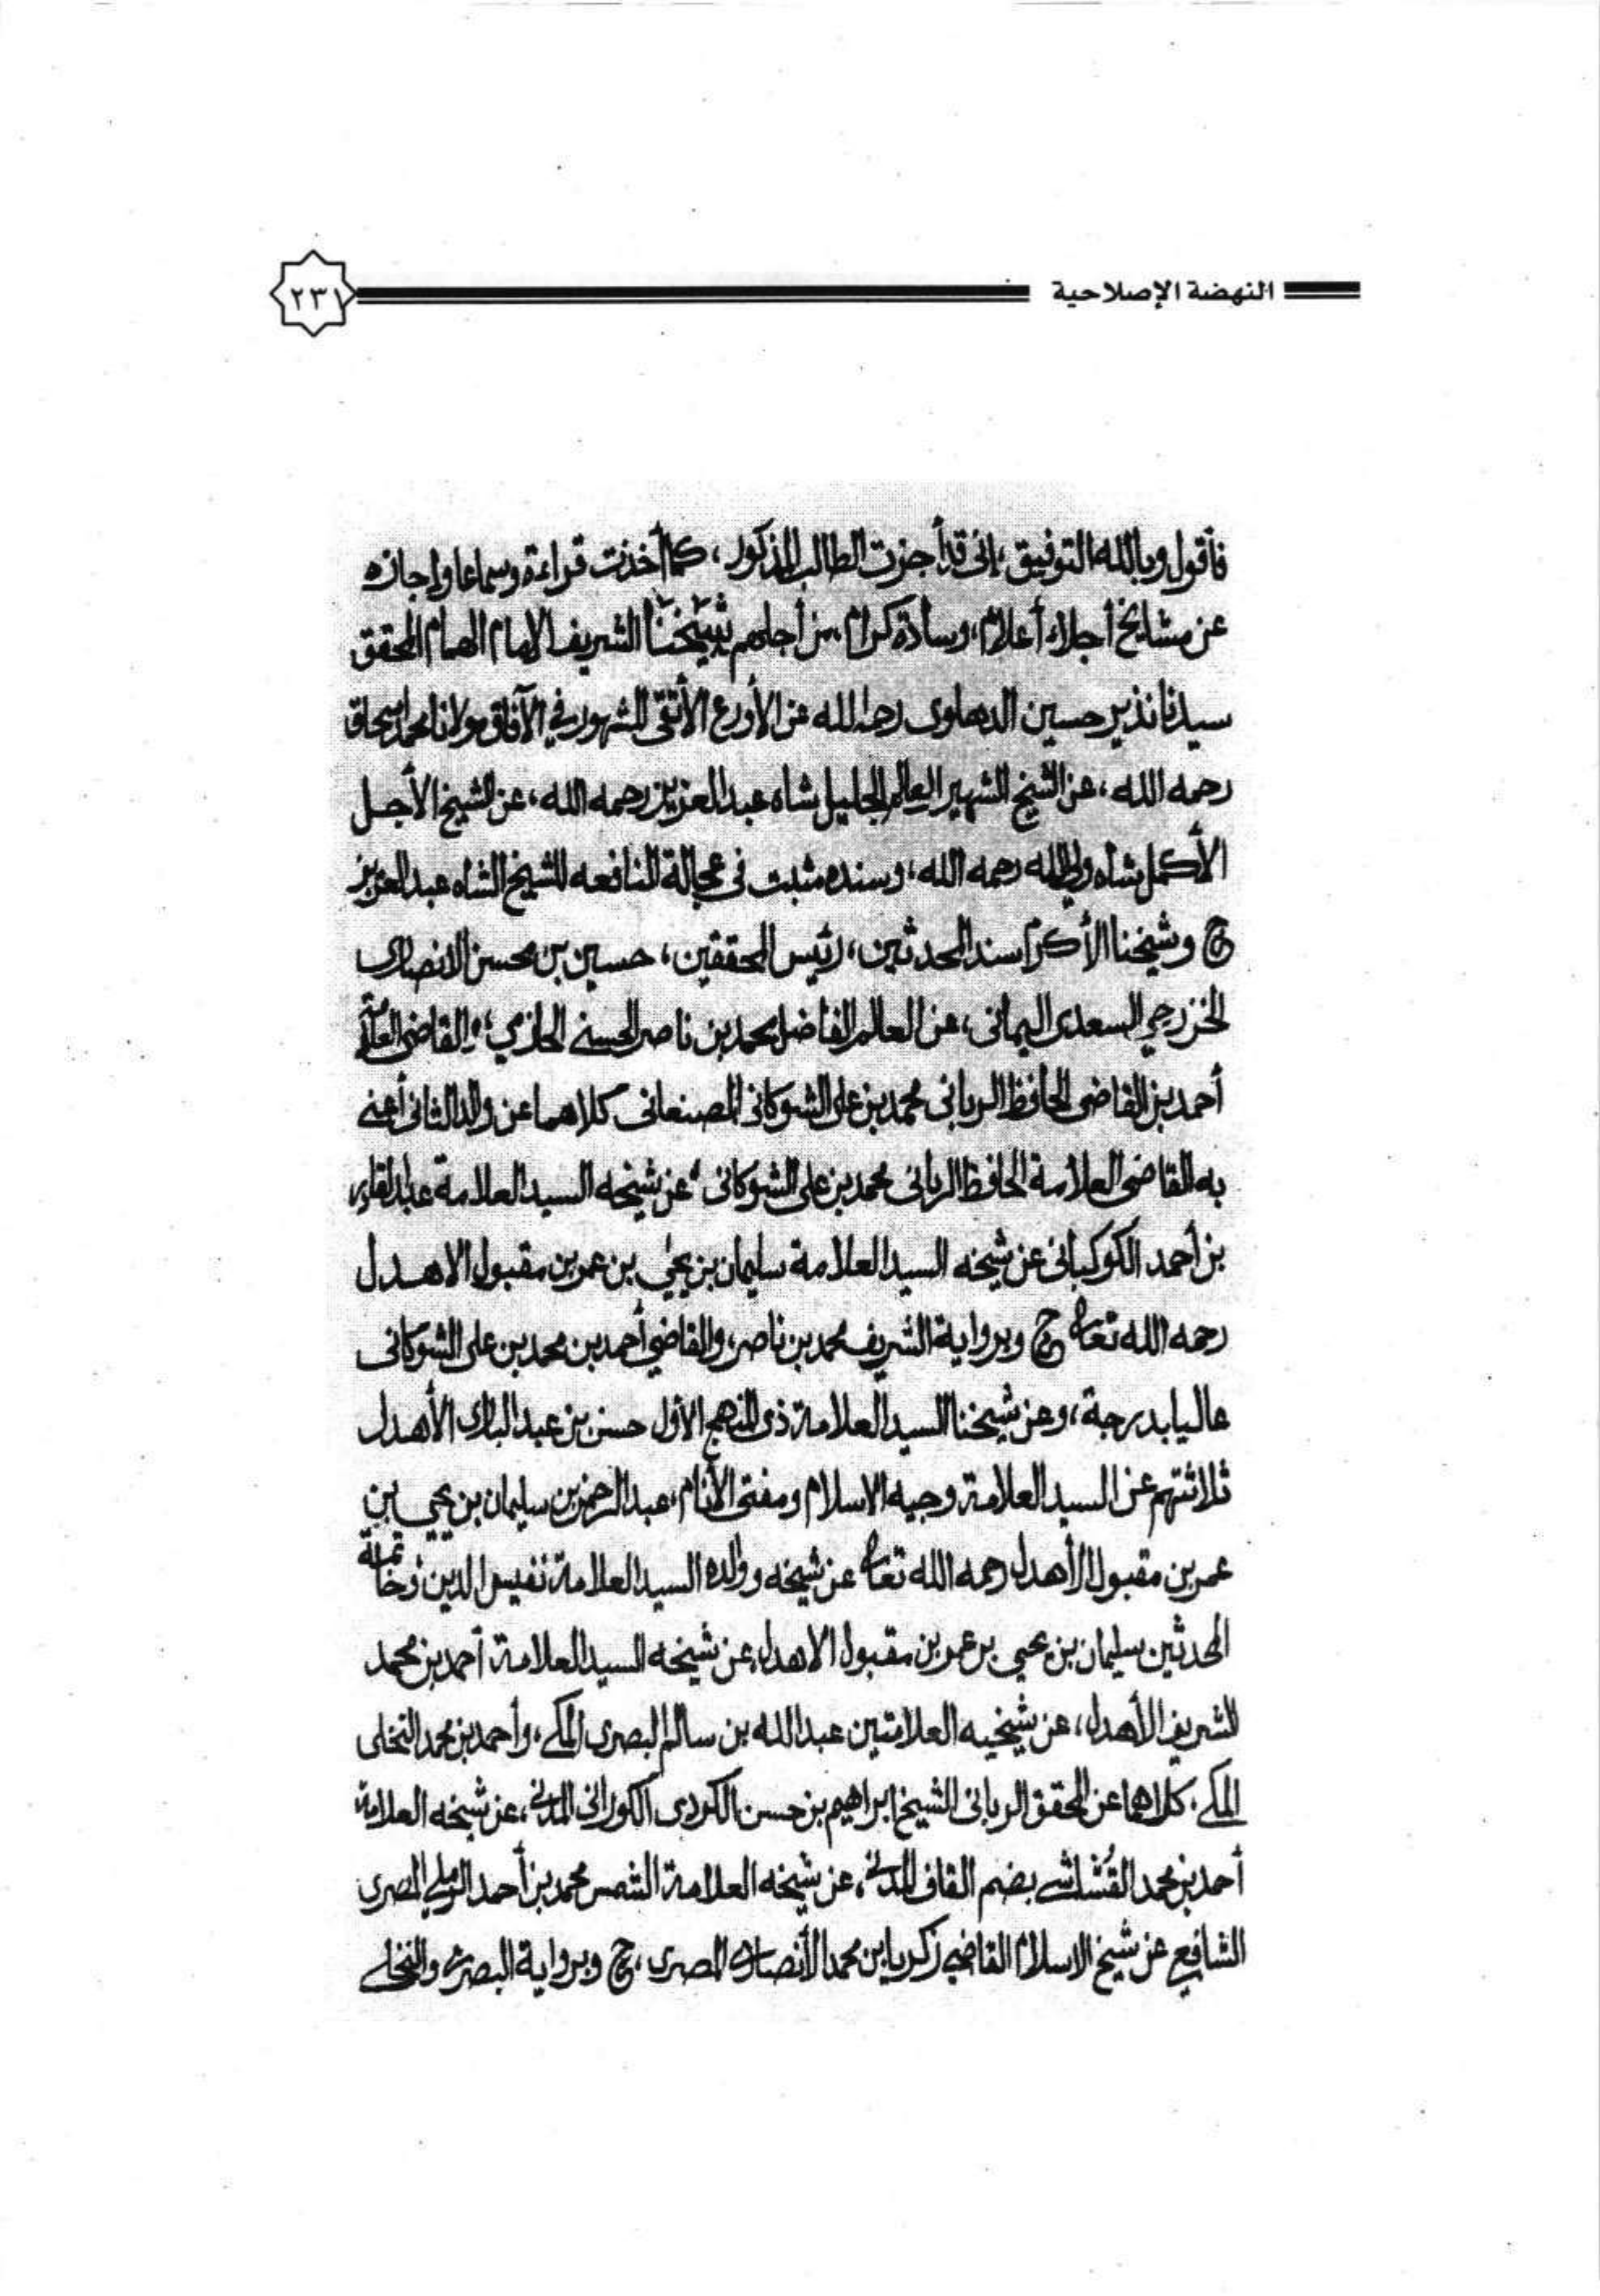 النهضة الإصلاحية
٢٣١
فأقول وبالله التوفيق، إنى قد أجزت الطالب المذكور، كما أخذت قراءة وسماعا واجازه
عن مشايخ أجلاء أعلام، وسادة كرام، من أجلهم شيخنا الشريف الامام الهمام المحقق
سيدنا نذير حسين الدهلوى رحمه الله عن الأورع الأتقى المشهور في الآفاق مولانا محمد اسحاق
رحمه الله، عن الشيخ الشهير العالم الجليل شاه عبد العزيز رحمه الله، عن الشيخ الأجل
الأكمل شاه ولي الله رحمه الله، وسنده مثبت فى عجالة النافعه للشيخ الشاه عبد العزيز
ح وشيخنا الأكرم سند المحدثين، رئيس المحققين، حسين بن محسن الانصارى
الخزرجي السعدى اليمانى، عن العالم الفاضل محمد بن ناصر الحسني الحازمي، والقاضى العلامة
أحمد بن القاضى الحافظ الربانى محمد بن على الشوكانى الصنعانى كلاهما عن والد الثانى أعني
به القاضى العلامة الحافظ الربانى محمد بن على الشوكانى، عن شيخه السيد العلامة عبد القادر
بن أحمد الكوكبانى عن شيخه السيد العلامة سليمان بن يحيى بن عمر بن مقبول الاهدل
رحمه الله تعالى ح وبرواية الشريف محمد بن ناصر، والقاضي أحمد بن محمد بن على الشوكانى
عاليا بدرجة، وعن شيخنا السيد العلامة ذى المنهج الأول حسن بن عبد البارى الأهدل
ثلاثتهم عن السيد العلامة وجيه الاسلام ومفتى الأنام، عبد الرحمن بن سليمان بن يحيى بن
عمر بن مقبول الأهدل رحمه الله تعالى عن شيخه ووالده السيد العلامة نفيس الدين وخاتمة
المحدثين سليمان بن يحيى بن عمر بن مقبول الاهدل، عن شيخه السيد العلامة أحمد بن محمد
الشريف الأهدل، عن شيخيه العلامتين عبد الله بن سالم البصرى المكي، وأحمد بن محمد النخلى
المكي، كلاهما عن المحقق الربانى الشيخ ابراهيم بن حسن الكردى الكورانى المدني، عن شيخه العلامة
أحمد بن محمد القُشاشي بضم القاف المدني، عن شيخه العلامة الشمس محمد بن أحمد الرملي المصرى
الشافعي عن شيخ الاسلام القاضي زكريا بن محمد الأنصارى المصرى، ح وبرواية البصرى والنخلي